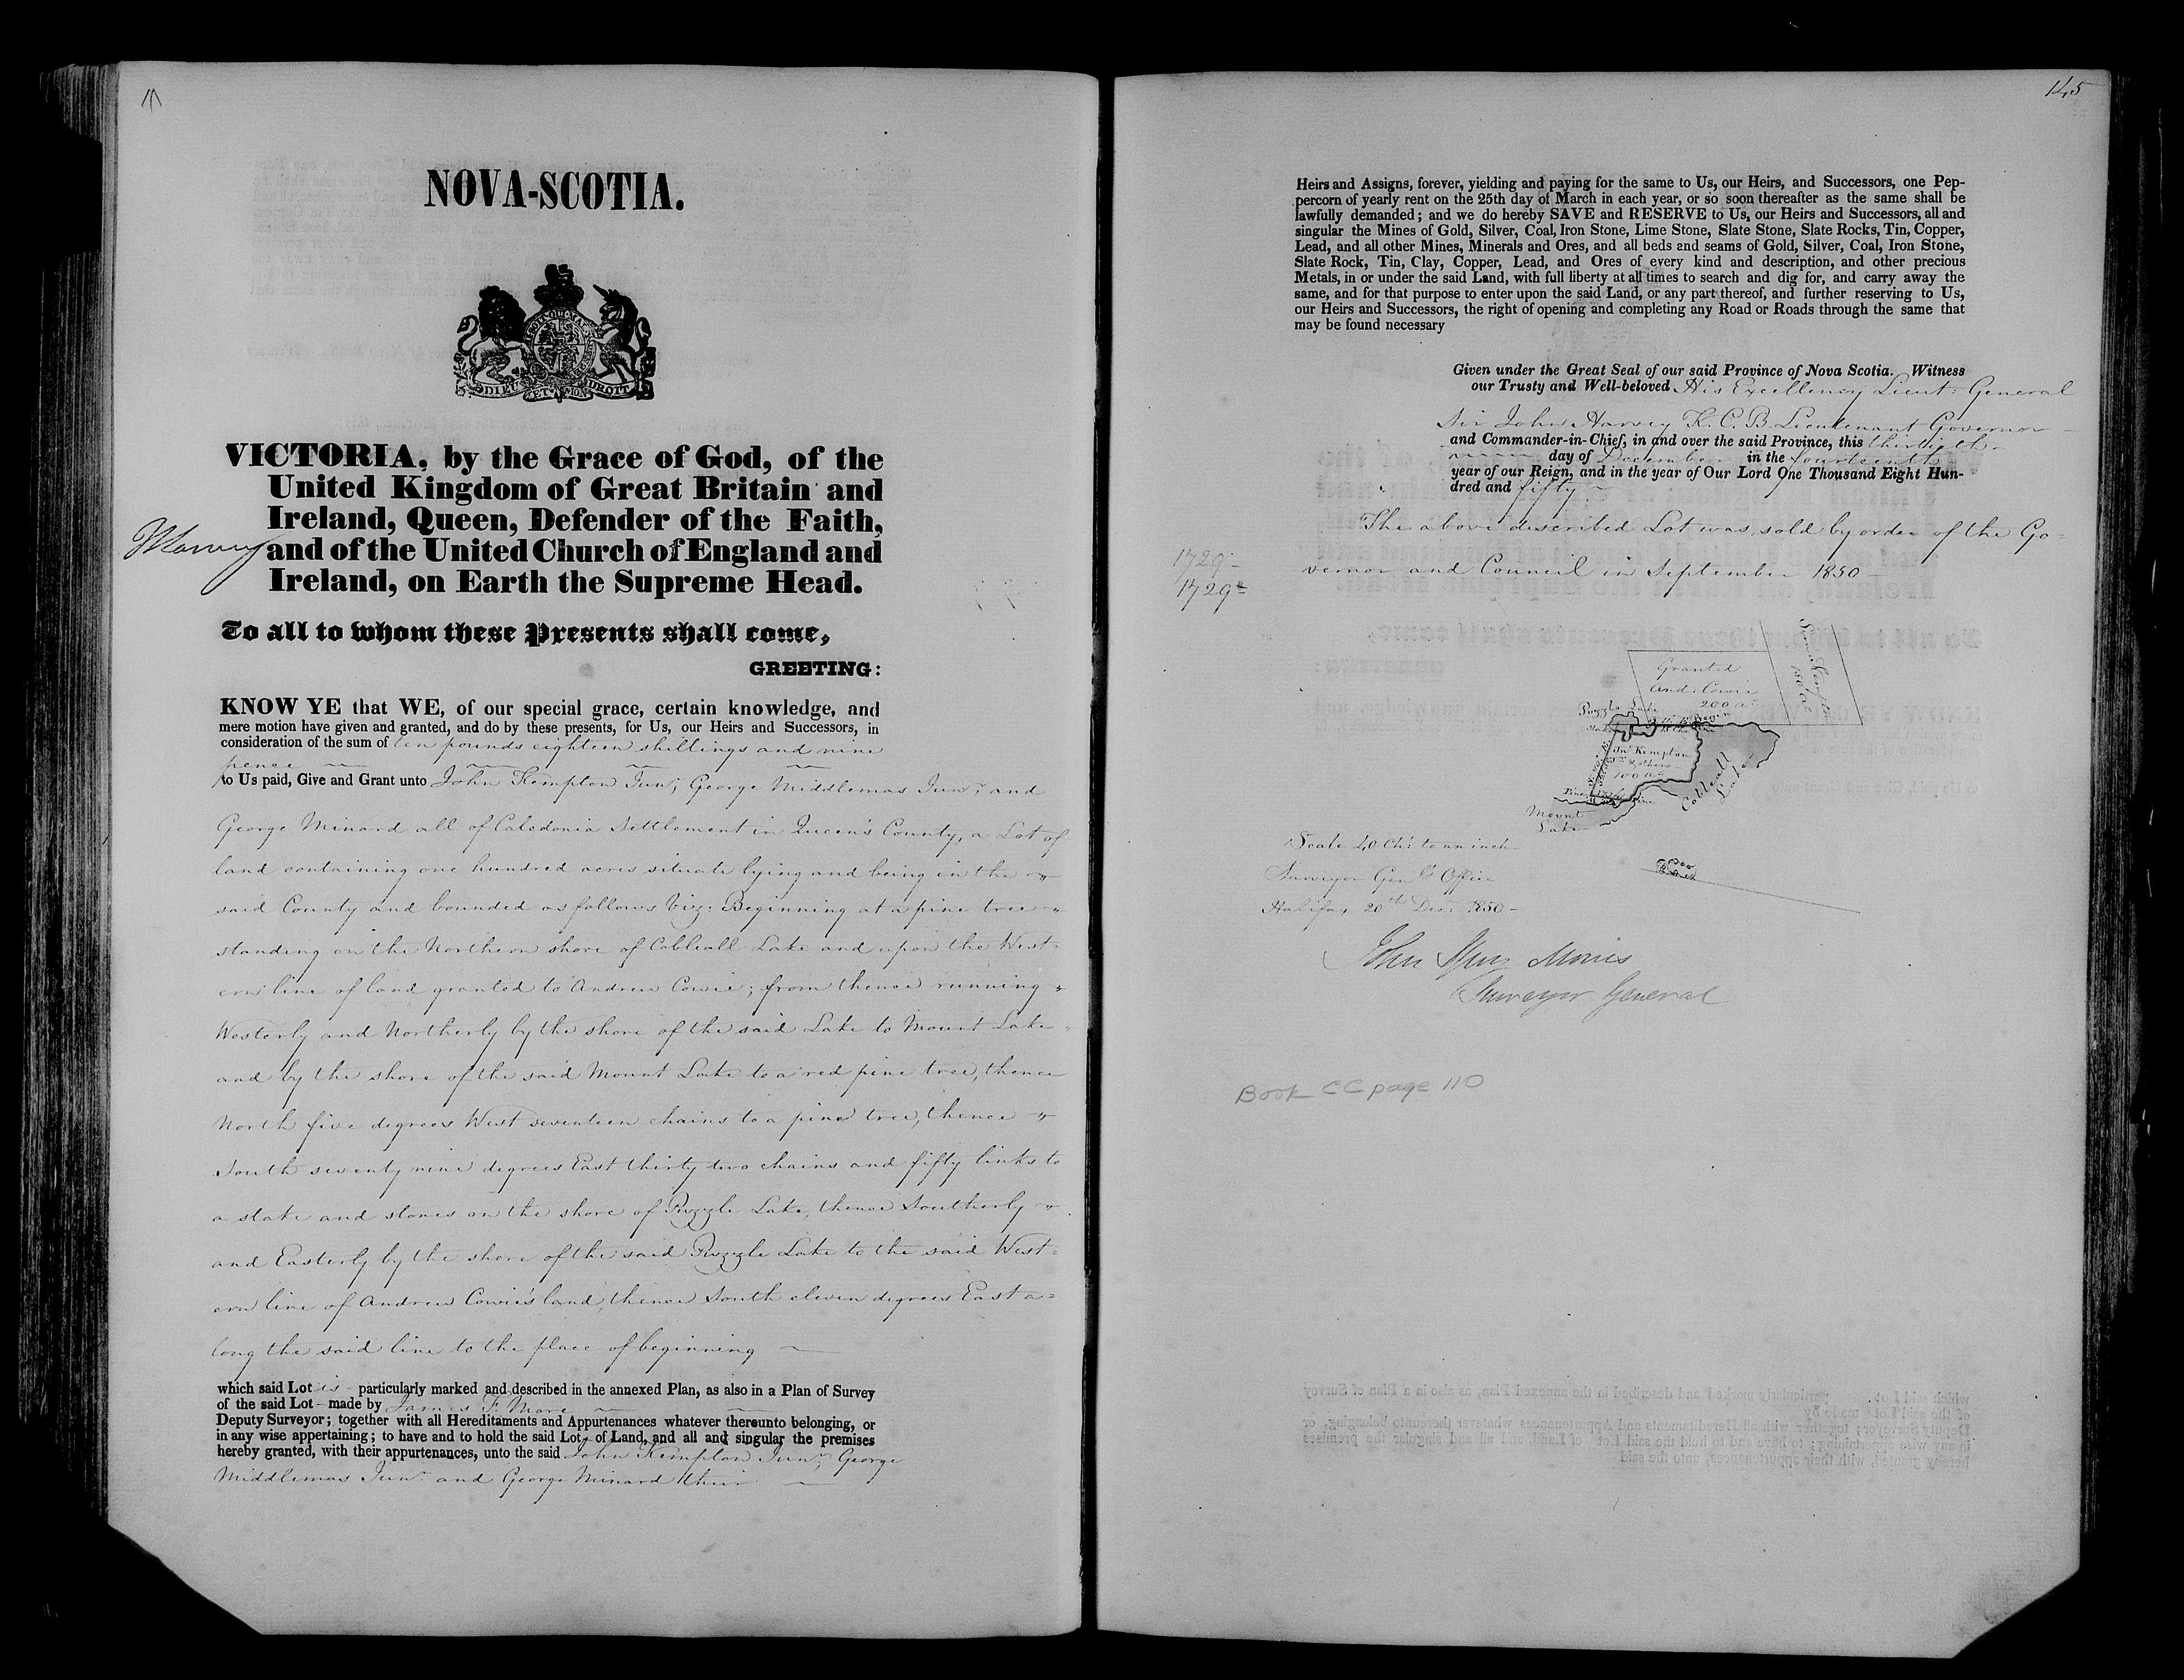 NOVA-SCOTIA.
DIEU ET MON DROIT
VICTORIA, by the Grace of God, of the
United Kingdom of Great Britain and
Ireland, Queen, Defender of the Faith,
and of the United Church of England and
Ireland, on Earth the Supreme Head.
To all to whom these Presents shall come,
GREETING:
KNOW YE that WE, of our special grace, certain knowledge, and
mere motion have given and granted, and do by these presents, for Us, our Heirs and Successors, in
consideration of the sum of ten pounds eighteen shillings and nine
pence
to Us paid, Give and Grant unto John Kempton Junr, George Middlemas Junr, and
George Minard all of Caledonia Settlement in Queen's County, a Lot of
land containing one hundred acres situate lying and being in the
said County and bounded as follows Viz: Beginning at a pine tree
standing on the Northern shore of Cobleall Lake and upon the West=
ern line of land granted to Andrew Cowie; from thence running
Westerly and Northerly by the shore of the said Lake to Mount Lake
and by the shore of the said Mount Lake to a red pine tree, thence
North five degrees West seventeen chains to a pine tree, thence
South seventy nine degrees East thirty two chains and fifty links to
a stake and stones on the shore of Puzzle Lake, thence Southerly
and Easterly by the shore of the said Puzzle Lake to the said West=
ern line of Andrew Cowie's land, thence South eleven degrees East a=
long the said line to the place of beginning
which said Lot is particularly marked and described in the annexed Plan, as also in a Plan of Survey
of the said Lot made by James F. More
Deputy Surveyor; together with all Hereditaments and Appurtenances whatever thereunto belonging, or
in any wise appertaining; to have and to hold the said Lot of Land, and all and singular the premises
hereby granted, with their appurtenances, unto the said John Kempton Junr, George
Middlemas Junr and George Minard their
145
Heirs and Assigns, forever, yielding and paying for the same to Us, our Heirs, and Successors, one Pep-
percorn of yearly rent on the 25th day of March in each year, or so soon thereafter as the same shall be
lawfully demanded; and we do hereby SAVE and RESERVE to Us, our Heirs and Successors, all and
singular the Mines of Gold, Silver, Coal, Iron Stone, Lime Stone, Slate Stone, Slate Rocks, Tin, Copper,
Lead, and all other Mines, Minerals and Ores, and all beds and seams of Gold, Silver, Coal, Iron Stone,
Slate Rock, Tin, Clay, Copper, Lead, and Ores of every kind and description, and other precious
Metals, in or under the said Land, with full liberty at all times to search and dig for, and carry away the
same, and for that purpose to enter upon the said Land, or any part thereof, and further reserving to Us,
our Heirs and Successors, the right of opening and completing any Road or Roads through the same that
may be found necessary
Given under the Great Seal of our said Province of Nova Scotia. Witness
our Trusty and Well-beloved His Excellency Lieut: General
Sir John Harvey K.C.B. Lieutenant Governor
and Commander-in-Chief, in and over the said Province, this thirtieth
day of December in the fourteenth
year of our Reign, and in the year of Our Lord One Thousand Eight Hun-
dred and fifty
The above described Lot was sold by order of the Go=
vernor and Council in September 1850
1729
1729
Granted
And: Cowie
200 as
Puzzle Lake
Jno Kempton
& others
100 as
Cobleall
Lake
Mount
Lake
Scale 40 Chs to an inch
Surveyor Genls Office
Halifax 20th Decr 1850
John Spry Morris
Surveyor General
Book CC page 110